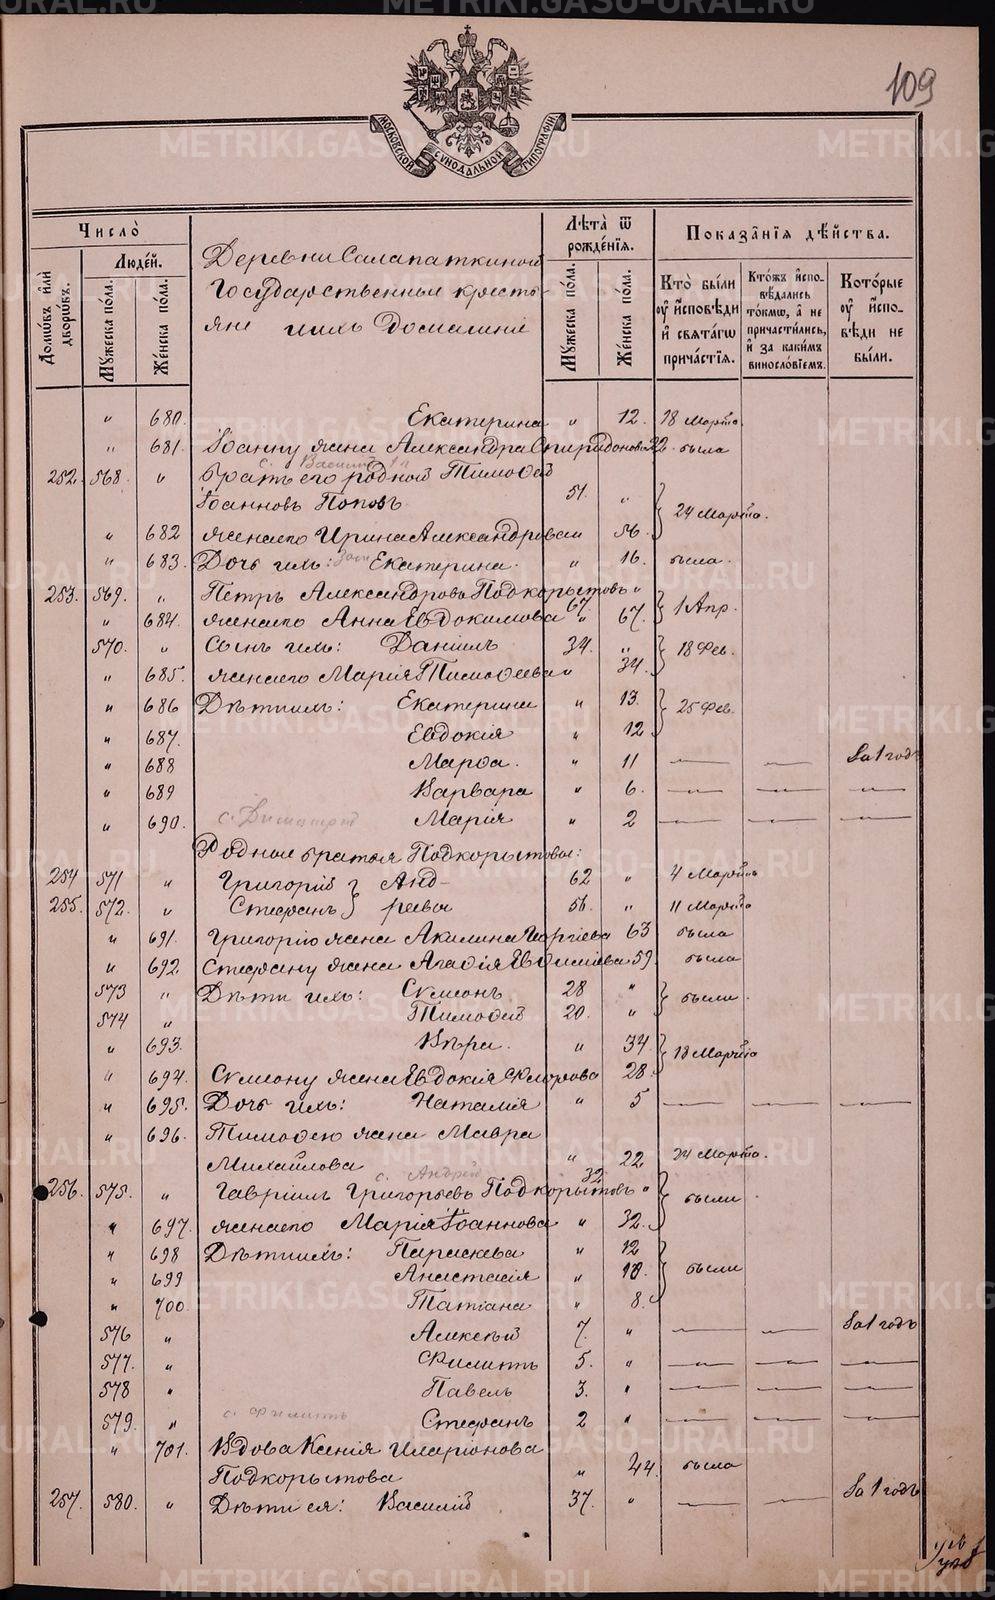 109
МОСКОВСКОЙ СѴНОДАЛЬНОЙ ТИПОГРАФІИ
Число̀
Домѡвъ и҆лѝ дворѡвъ.
Людей.
Мꙋжеска пола.
Женска пола.
Деревни Салапаткиной
Государственные кресть-
яне и ихъ домашніе
Лѣта ѿ рожденїѧ.
Мꙋжеска пола.
Женска пола.
Показанїѧ дѣйства.
Кто были ꙋ исповѣди и свѧтагѡ причастїѧ.
Ктожъ исповѣдались токмѡ, а не причастились, и за какимъ винословїемъ.
Которые ꙋ исповѣди не были.
" 680. Екатерина " 12. 18 Марта.
" 681. Іоанну жена Александра Спиридонова 22. была
с. Василій 1 г.
252. 568. " Братъ его родной Тимоѳей
Іоанновъ Поповъ 51. "
24 Марта.
" 682 жена его Ирина Александрова " 56.
" 683. Дочь ихъ: Екатерина. " 16. была.
253. 569. " Петръ Александровъ Подкорытовъ 67. "
1 Апр.
" 684. жена его Анна Евдокимова " 67.
570. " Сынъ ихъ: Даніилъ 34. "
18 Фев.
" 685. жена его Марія Тимоѳеева " 34.
" 686 Дѣти ихъ: Екатерина " 13.
25 Фев.
" 687. Евдокія " 12
" 688 Марѳа. " 11 — — За 1 годъ
" 689 Варвара " 6. — — —
" 690. с. Димитрій Марія " 2 — — —
Родные братья Подкорытовы:
254 571 " Григорій } Анд- 62 " 4 Марта
255. 572. " Стефанъ } реевы 56. " 11 Марта
" 691. Григорію жена Акилина Георгіева 63 была
" 692 Стефану жена Агаѳія Евѳиміева 59. была
573 " Дѣти ихъ: Симеонъ 28 "
были
574 " Тимоѳей 20. "
" 693. Вѣра. " 34
18 Марта
" 694. Симеону жена Евдокія Флорова 28.
" 695. Дочь ихъ: Наталія " 5 — — —
" 696. Тимоѳею жена Мавра
Михайлова " 22 24 Марта.
с. Андрей
256. 575. " Гавріилъ Григорьевъ Подкорытовъ 32 "
были
" 697. жена его Марія Іоаннова " 32.
" 698 Дѣти ихъ: Параскева " 12
были
" 699 Анастасія " 10.
" 700. Татіана " 8.
576 " Алексѣй 7. " — — За 1 годъ
577. " Филиппъ 5. " — — —
578 " Павелъ 3. " — — —
579. " с. Филиппъ Стефанъ 2 " — — —
" 701. Вдова Ксенія Иларіонова
Подкорытова " 44. была
257. 580. " Дѣти ея: Василій 37. " — — За 1 годъ
METRIKI.GASO-URAL.RU